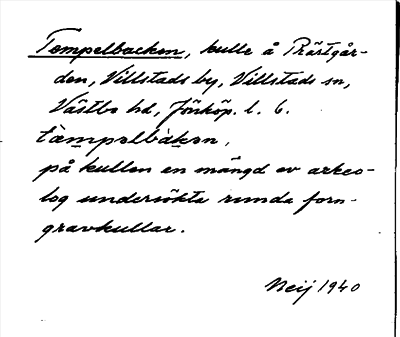 Tempelbacken, kulle å Prästgår-
den, Villstads by, Villstads sn,
Västbo hd, Jönköp. l. 6.
tàmpəlbàkən,
på kullen en mängd ev arkeo-
log undersökta runda forn-
gravkullar.
Neij 1940